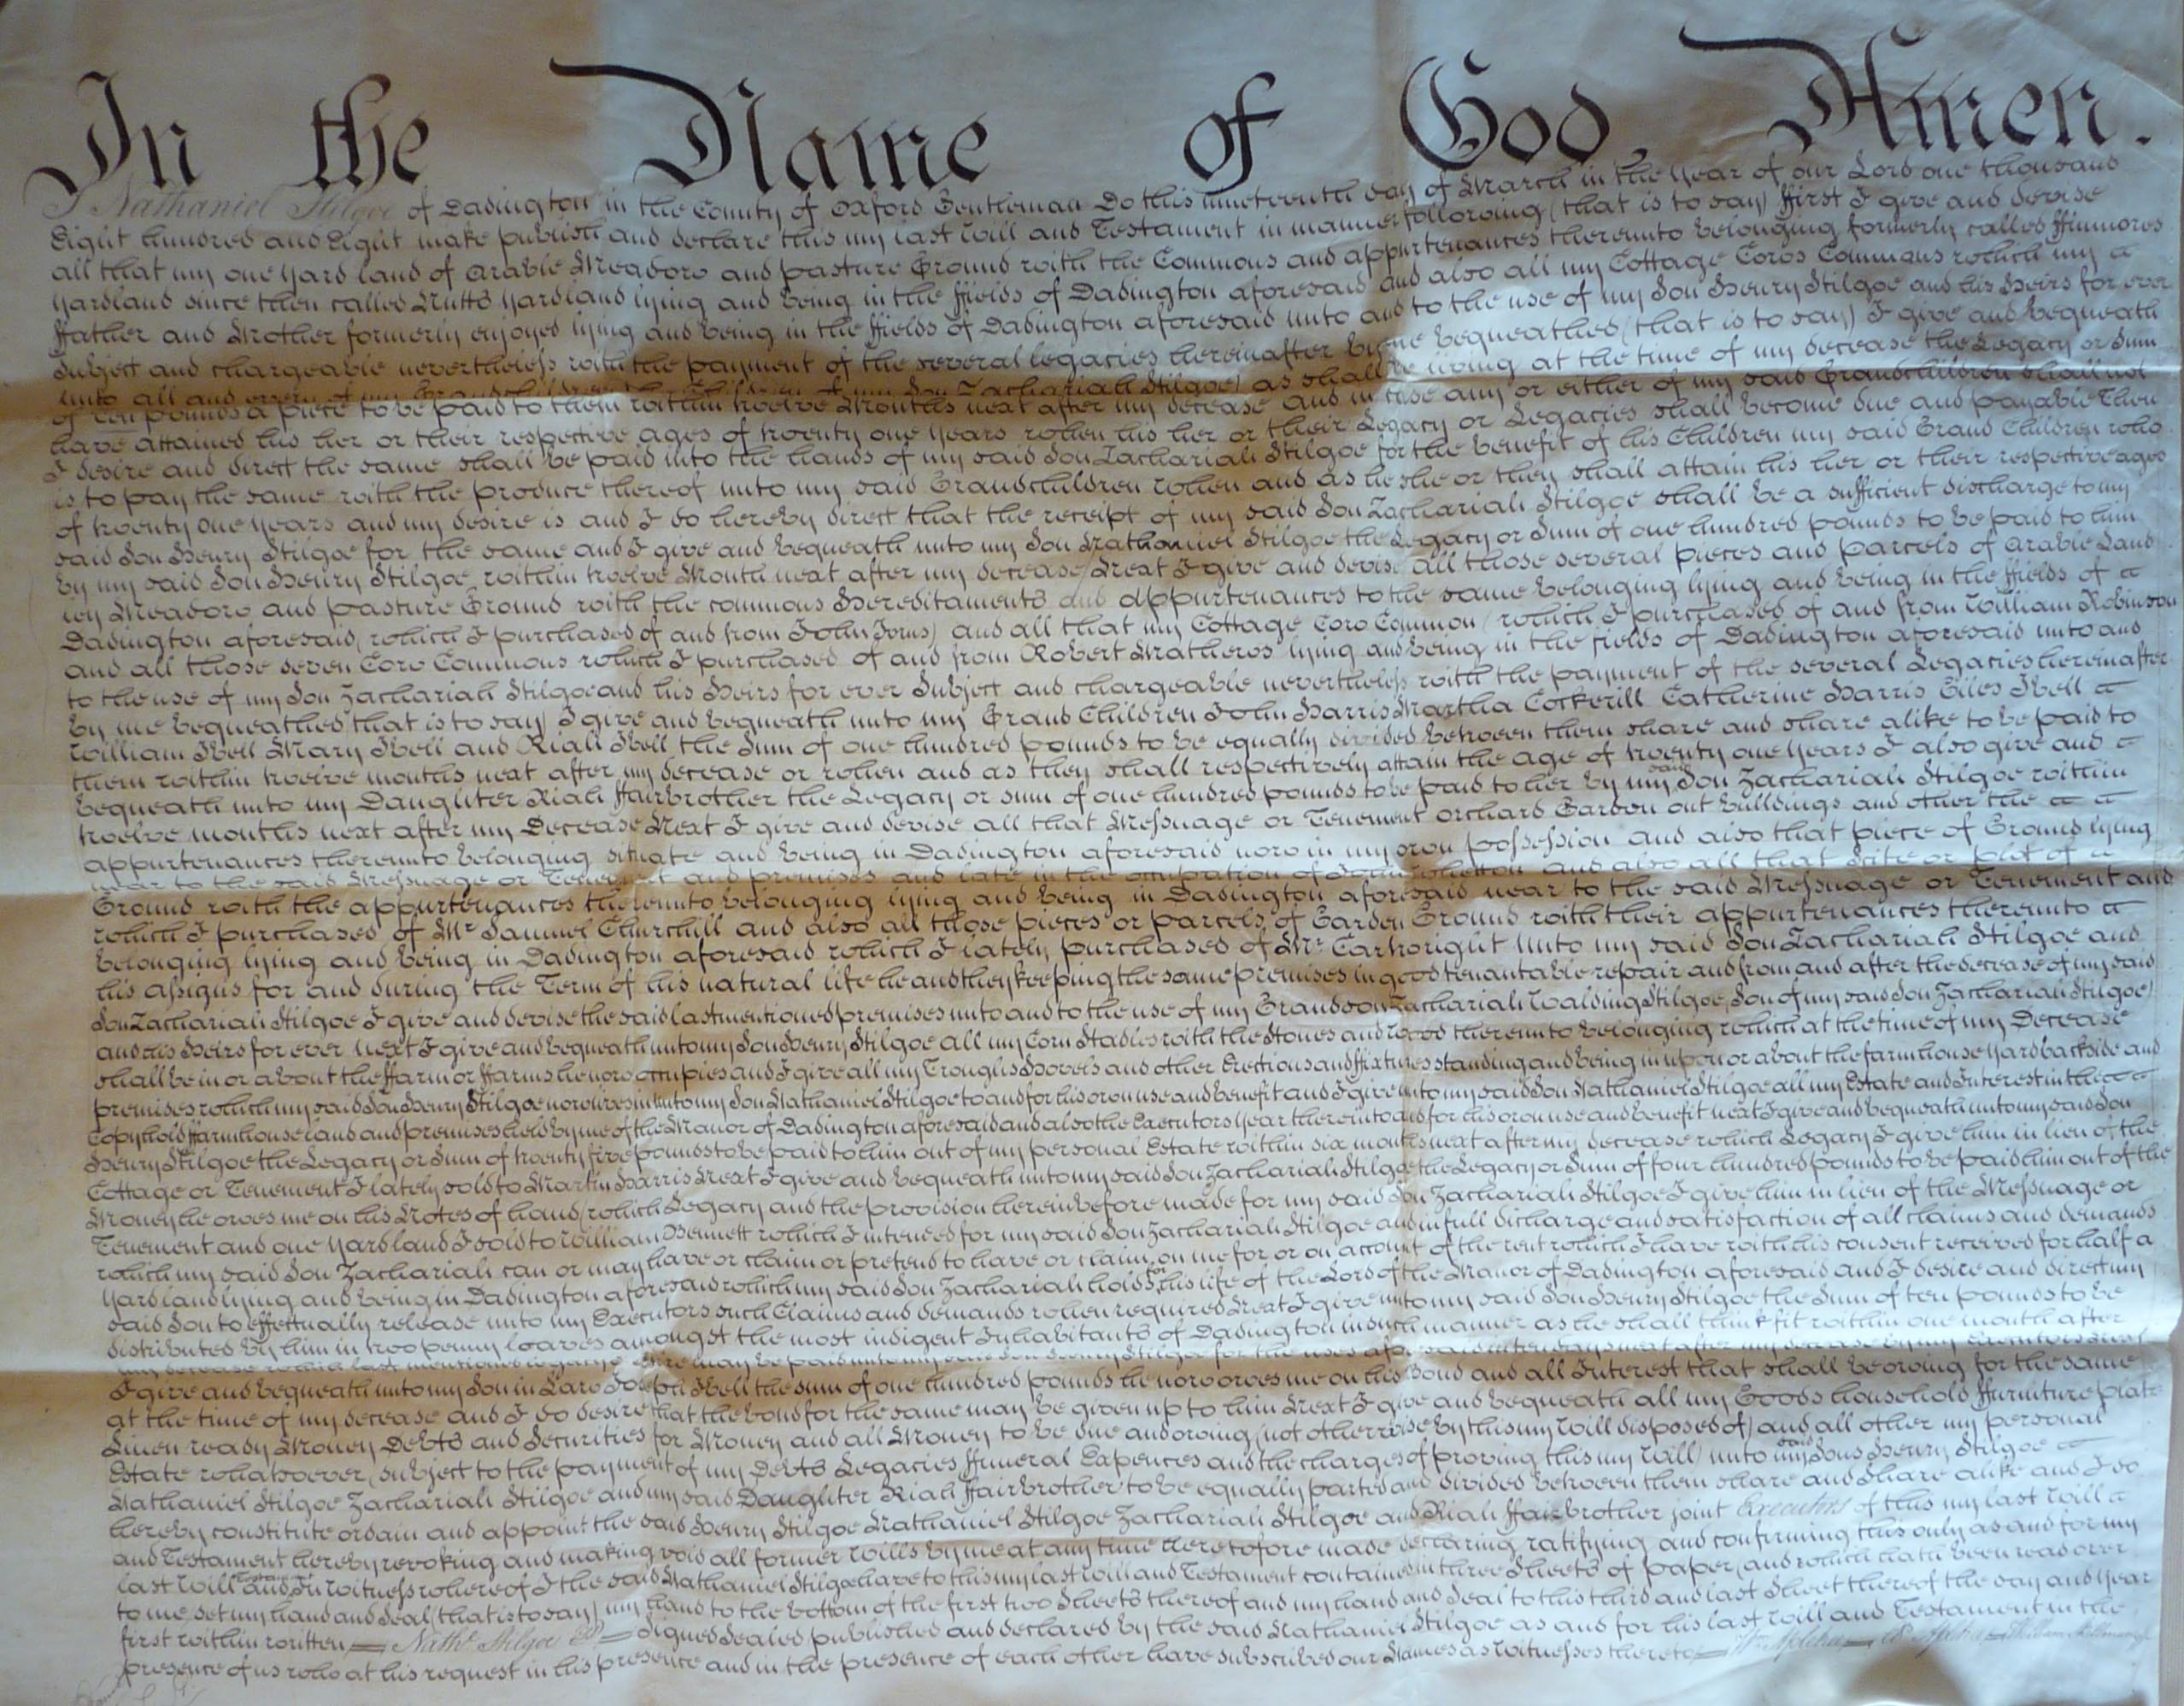 In the Name of God, Amen.
I Nathaniel Stilgoe of Dadington in the County of Oxford Gentleman Do this nineteenth day of March in the Year of our Lord one thousand
Eight hundred and Eight make publish and declare this my last Will and Testament in manner following (that is to say) ffirst I give and devise
all that my one Yard land of Arable Meadow and pasture Ground with the Commons and appurtenances thereunto belonging formerly called
Yardland since then called Nutts Yardland lying and being in the ffields of Dadington aforesaid and also all my Cottage Cows Commons which my
ffather and Mother formerly enjoyed lying and being in the ffields of Dadington aforesaid unto and to the use of my Son Henry Stilgoe and his Heirs for ever
Subject and chargeable nevertheless with the payment of the several legacies hereinafter by me bequeathed (that is to say) I give and bequeath
unto all and every of my Grandchildren the Children of my Son Zachariah Stilgoe) as shall be living at the time of my decease the Legacy or Sum
of ten pounds a piece to be paid to them within twelve Months next after my decease and in case any or either of my said Grandchildren shall not
have attained his her or their respective ages of twenty one Years when his her or their Legacy or Legacies shall become due and payable Then
I desire and direct the same shall be paid into the hands of my said Son Zachariah Stilgoe for the benefit of his Children my said Grand Children who
is to pay the same with the produce thereof unto my said Grandchildren when and as he she or they shall attain his her or their respective ages
of twenty one Years and my desire is and I do hereby direct that the receipt of my said Son Zachariah Stilgoe shall be a sufficient discharge to my
said Son Henry Stilgoe for the same and I give and bequeath unto my Son Nathaniel Stilgoe the Legacy or Sum of one hundred pounds to be paid to him
by my said Son Henry Stilgoe within twelve Month next after my decease Next I give and devise all those several pieces and parcels of Arable Land
ley Meadow and pasture Ground with the commons Hereditaments and appurtenances to the same belonging lying and being in the ffields of
Dadington aforesaid (which I purchased of and from John) and all that my Cottage Cow Common (which I purchased of and from William Robinson
and all those seven Cow Commons which I purchased of and from Robert Mathews lying and being in the fields of Dadington aforesaid unto and
to the use of my Son Zachariah Stilgoe and his Heirs for ever Subject and chargeable nevertheless with the payment of the several Legacies hereinafter
by me bequeathed that is to say) I give and bequeath unto my Grand Children John Harris Martha Cockerill Catherine Harris Giles Ibell
William Ibell Mary Ibell and Riah Ibell the Sum of one hundred pounds to be equally divided between them share and share alike to be paid to
them within twelve months next after my decease or when and as they shall respectively attain the age of twenty one Years I also give and
bequeath unto my Daughter Riah ffairbrother the Legacy or sum of one hundred pounds to be paid to her by my said Son Zachariah Stilgoe within
twelve months next after my Decease Next I give and devise all that Messuage or Tenement orchard Garden out buildings and other the
appurtenances thereunto belonging situate and being in Dadington aforesaid now in my own possession and also that piece of Ground lying
near to the said Messuage or Tenement and premises and late in the occupation of and also all that Scite or plot of
Ground with the appurtenances thereunto belonging lying and being in Dadington aforesaid near to the said Messuage or Tenement and
which I purchased of Mr Samuel Churchill and also all those pieces or parcels of Garden Ground with their appurtenances thereunto
belonging lying and being in Dadington aforesaid which I lately purchased of Mr Cartwright Unto my said Son Zachariah Stilgoe and
his assigns for and during the Term of his natural life he and they keeping the same premises in good tenantable repair and from and after the decease of my said
Son Zachariah Stilgoe I give and devise the said lastmentioned premises unto and to the use of my Grandson Zachariah Walding Stilgoe (Son of my said Son Zachariah Stilgoe)
and his Heirs for ever Next I give and bequeath unto my Son Henry Stilgoe all my Corn Stadles with the Stones and wood thereunto belonging which at the time of my Decease
shall be in or about the ffarm or ffarms he now occupies and I give all my Troughs Hovels and other Erections and ffixtures standing and being in upon or about the farmhouse Yard backside and
premises which my said Son Henry Stilgoe now lives in unto my Son Nathaniel Stilgoe to and for his own use and benefit and I give unto my said Son Nathaniel Stilgoe all my Estate and Interest in the
Copyhold ffarmhouse land and premises held by me of the Manor of Dadington aforesaid and also the Executors Year therein to and for his own use and benefit next I give and bequeath unto my said Son
Henry Stilgoe the Legacy or Sum of twenty five pounds to be paid to him out of my personal Estate within six months next after my decease which Legacy I give him in lieu of the
Cottage or Tenement I lately sold to Martin Harris Next I give and bequeath unto my said Son Zachariah Stilgoe the Legacy or Sum of four hundred pounds to be paid him out of the
Money he owes me on his Notes of hand (which Legacy and the provision hereinbefore made for my said Son Zachariah Stilgoe I give him in lieu of the Messuage or
Tenement and one Yardland I sold to William Bennett which I intended for my said Son Zachariah Stilgoe and in full discharge and satisfaction of all claims and demands
which my said Son Zachariah can or may have or claim or pretend to have or claim on me for or on account of the rent which I have with his consent received for half a
Yardland lying and being in Dadington aforesaid which my said Son Zachariah holds for his life of the Lord of the Manor of Dadington aforesaid and I desire and direct my
said Son to effectually release unto my Executors such Claims and demands when required Next I give unto my said Son Henry Stilgoe the Sum of ten pounds to be
distributed by him in two penny loaves amongst the most indigent Inhabitants of Dadington in such manner as he shall think fit within one month after
my decease which last mentioned legacy I desire may be paid unto my said Son Henry Stilgoe for the uses aforesaid in ten days next after my decease by my Executors
I give and bequeath unto my Son in Law Joseph Ibell the sum of one hundred pounds he now owes me on his Bond and all Interest that shall be owing for the same
at the time of my decease and I do desire that the bond for the same may be given up to him Next I give and bequeath all my Goods household ffurniture plate
Linen ready Money Debts and Securities for Money and all Money to be due and owing (not otherwise by this my Will disposed of) and all other my personal
Estate whatsoever (subject to the payment of my Debts Legacies ffuneral Expences and the charges of proving this my Will) unto my said Sons Henry Stilgoe
Nathaniel Stilgoe Zachariah Stilgoe and my said Daughter Riah ffairbrother to be equally parted and divided between them share and share alike and I do
hereby constitute ordain and appoint the said Henry Stilgoe Nathaniel Stilgoe Zachariah Stilgoe and Riah ffairbrother joint Executors of this my last Will
and Testament hereby revoking and making void all former Wills by me at any time heretofore made declaring ratifying and confirming this only as and for my
last Will and Testament In Witness whereof I the said Nathaniel Stilgoe have to this my last Will and Testament contained in three Sheets of paper, and which hath been read over
to me, set my hand and Seal (that is to say) my hand to the bottom of the first two Sheets thereof and my hand and Seal to this third and last Sheet thereof the day and Year
first within written Nathl Stilgoe Signed Sealed published and declared by the said Nathaniel Stilgoe as and for his last Will and Testament in the
presence of us who at his request in his presence and in the presence of each other have subscribed our Names as Witnesses thereto